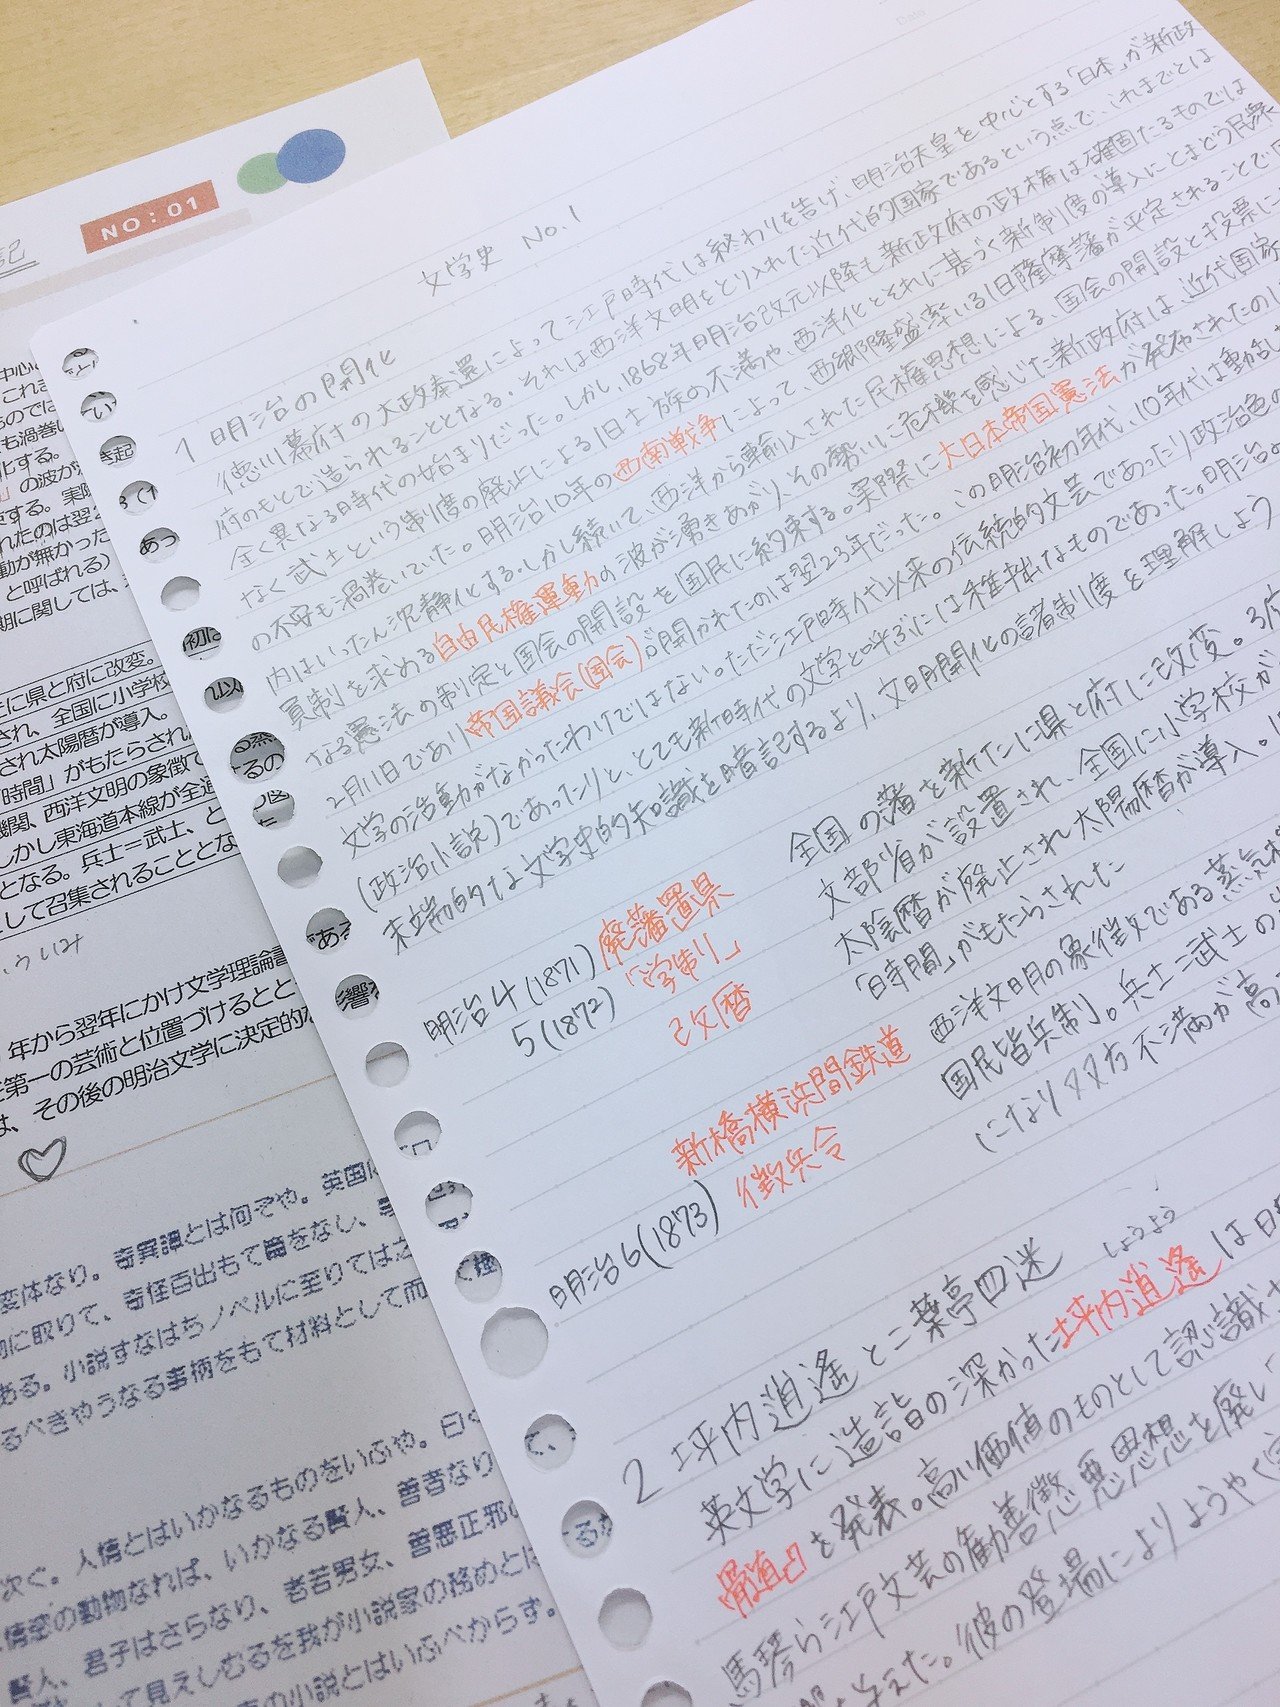 Date
NO:01
記
文学史 No.1
1 明治の開化
徳川幕府の大政奉還によって江戸時代は終わりを告げ、明治天皇を中心とする「日本」が新政
府のもとで造られることとなる。それは西洋文明をとり入れた近代的国家であるという点で、これまでとは
全く異なる時代の始まりだった。しかし、1868年明治改元以降も新政府の政権は確固たるものでは
なく武士という制度の廃止による旧士族の不満や、西洋化とそれに基づく新制度の導入にとまどう民衆
の不安も渦巻いていた。明治10年の西南戦争によって、西郷隆盛率いる旧薩摩藩が平定されることで国
内はいったん沈静化する。しかし続いて、西洋から輸入された民権思想による、国会の開設と投票に
員制を求める自由民権運動の波が湧きあがり、その勢いに危機を感じた新政府は、近代国家
なる憲法の制定と国会の開設を国民に約束する。実際に大日本帝国憲法が発布されたのは
2月11日であり帝国議会(国会)が開かれたのは翌23年だった。この明治初年代、10年代は
文学の活動がなかったわけではない。ただ江戸時代以来の伝統的文芸であったり政治色の
(政治小説)であったりと、とても新時代の文学と呼ぶには稚拙なものであった。明治
末端的な文学史的知識を暗記するより、文明開化の諸制度を理解しよう
明治4(1871) 廃藩置県 全国の藩を新たに県と府に改変。3府
5(1872) 「学制」 文部省が設置され、全国に小学校が
改暦 太陰暦が廃止され太陽暦が導入。
「時間」がもたらされた
新橋横浜間鉄道 西洋文明の象徴である蒸気
明治6(1873) 徴兵令 国民皆兵制」。兵士=武士の
になり双方不満が高
2 坪内逍遥と二葉亭四迷
しょうよう
英文学に造詣の深かった坪内逍遥は
骨頂』を発表。高い価値のものとして認識
馬琴ら江戸文芸の勧善懲悪思想を廃し
を与えた。彼の登場によりようやく
たに県と府に改変。
され、全国に小学校
され太陽暦が導入。
時間」がもたらされ
機関、西洋文明の象徴で
しかし東海道本線が全通
となる。兵士=武士、と
して召集されることとな
年から翌年にかけ文学理論書
第一の芸術と位置づけるとと
は、その後の明治文学に決定的な
変体なり。奇異譚とは何ぞや。英国に
物に取りて、奇怪百出もて篇をなし、
ある。小説すなはちノベルに至りては之
るべきやうなる事柄をもて材料として而
次ぐ。人情とはいかなるものをいふや。曰く
情慾の動物なれば、いかなる賢人、善者なり
賢人、君子はさらなり、老若男女、善悪正邪の
して見えしむるを我が小説家の務めとは
の小説とはいふべからず。